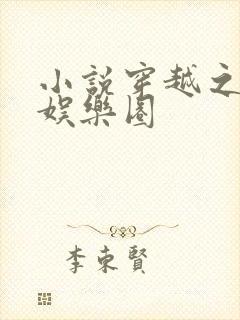 小說穿越之
娛樂圈
李東賢